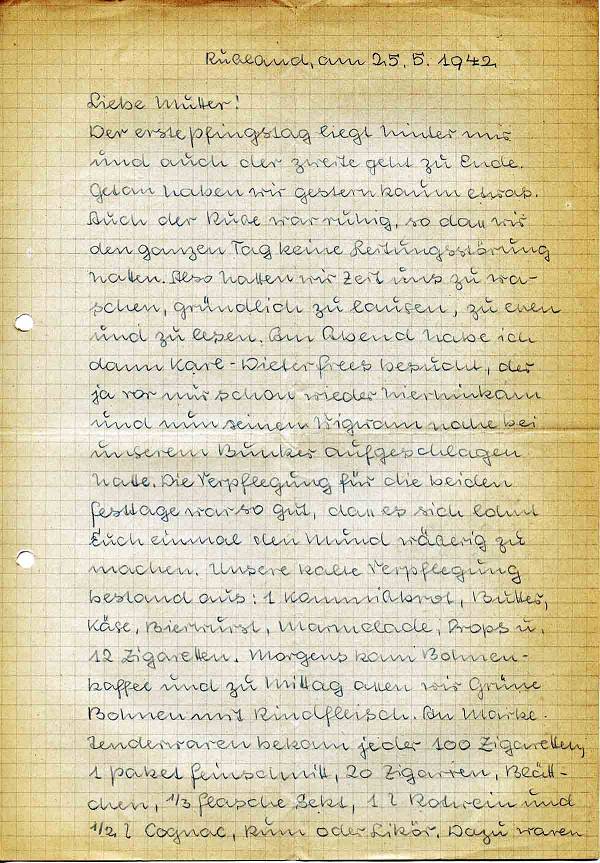 Rußland, am 25.5.1942
Liebe Mutter!
Der erste Pfingstag liegt hinter mir
und auch der zweite geht zu Ende.
Getan haben wir gestern kaum etwas.
Auch der Ruße war ruhig, so dass wir
den ganzen Tag keine Leitungsstörung
hatten. Also hatten wir Zeit uns zu wa-
schen, gründlich zu lausen, zu essen
und zu lesen. Am Abend habe ich
dann Karl-Dieter Frees besucht, der
ja vor mir schon wieder hierhinkam
und nun seinen Wigwam nahe bei
unserem Bunker aufgeschlagen
hatte. Die Verpflegung für die beiden
Festtage war so gut, dass es sich lohnt
Euch einmal den Mund wäßerig zu
machen. Unsere kalte Verpflegung
bestand aus: 1 Kommißbrot, Butter,
Käse, Bierwurst, Marmelade, Drops u.
12 Zigaretten. Morgens kam Bohnen-
kaffee und zu Mittag assen wir Grüne
Bohnen mit Rindfleisch. An Marke-
tenderwaren bekam jeder 100 Zigaretten,
1 Paket Feinschnitt, 20 Zigarren, Blätt-
chen, 1/3 Flasche Sekt, 1 l Rotwein und
1/2 l Cognac, Rum oder Likör. Dazu waren